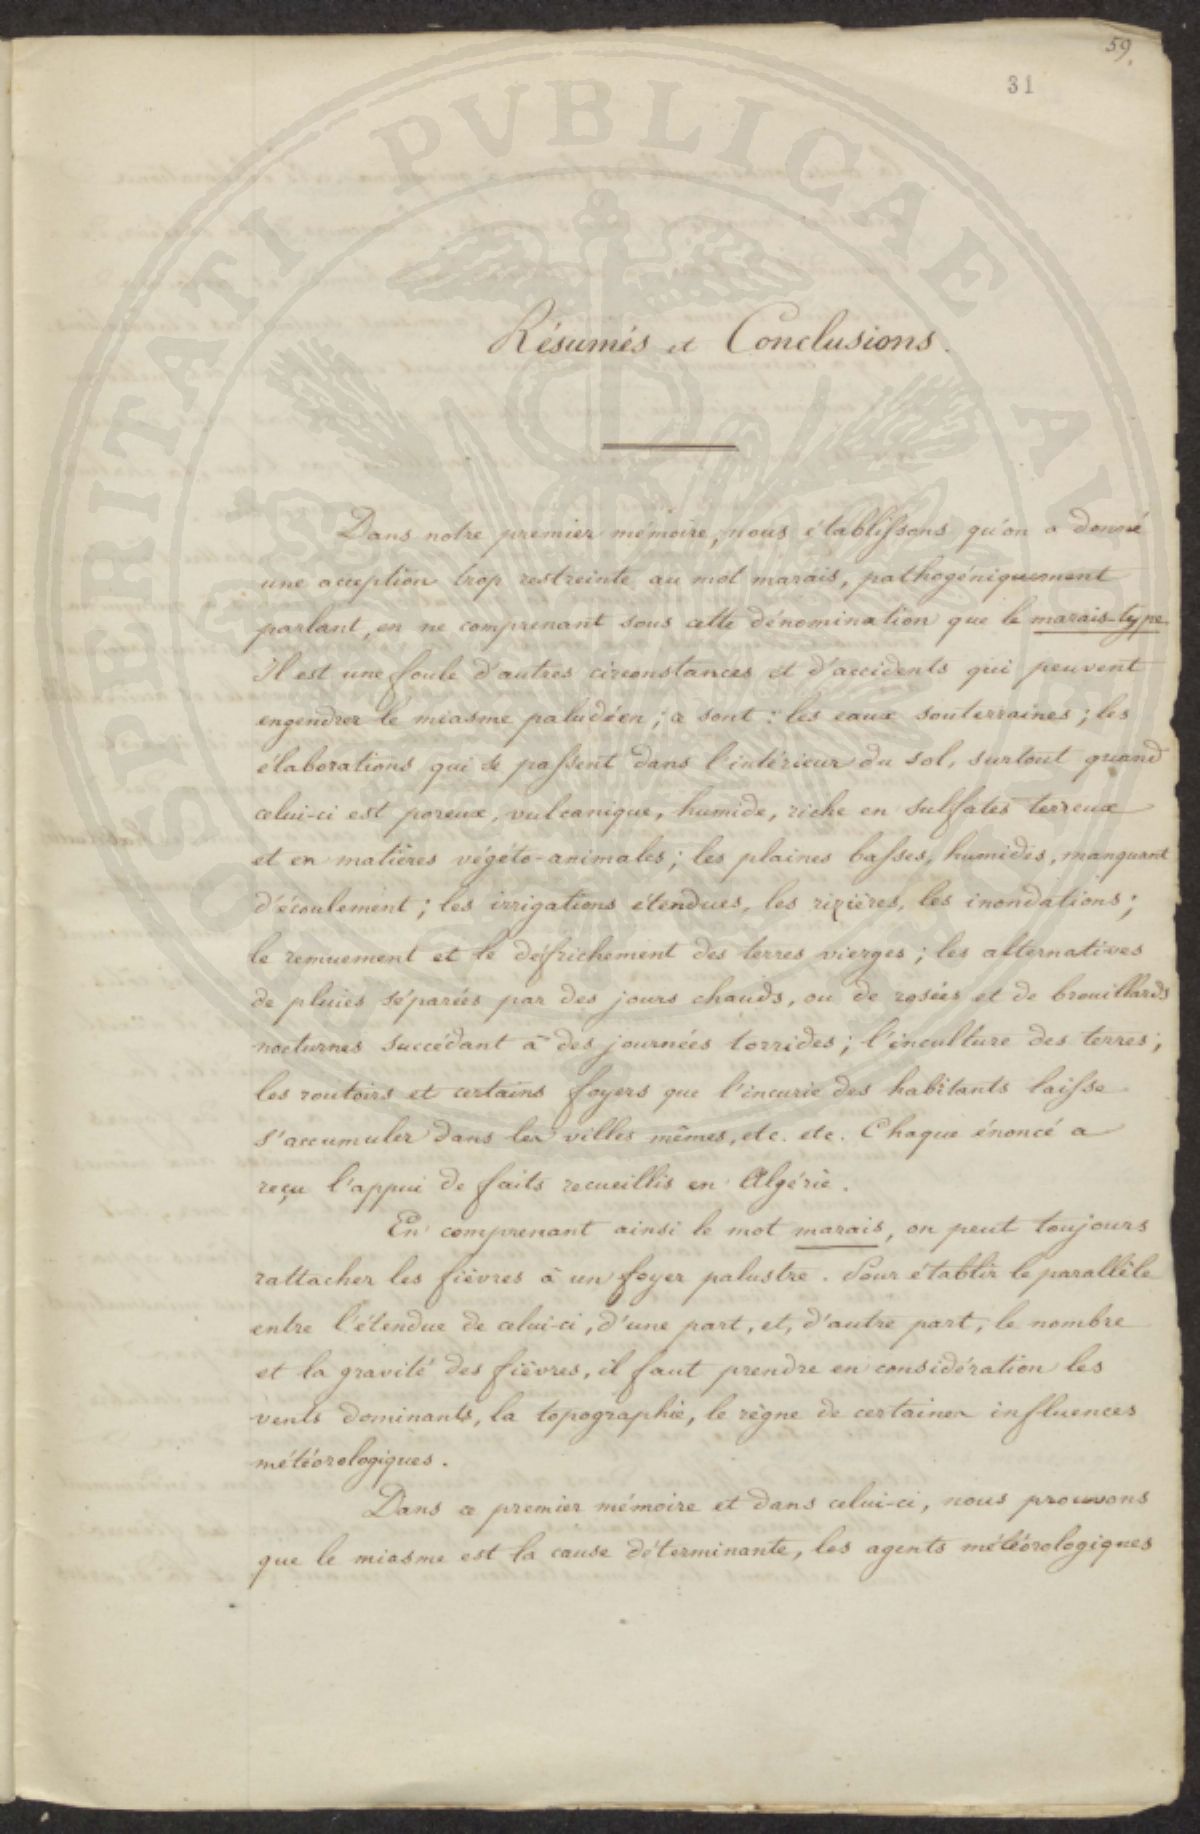 59.
31
Résumés et Conclusions.
Dans notre premier mémoire, nous établissons qu'on a donné
une acception trop restreinte au mot marais, pathogéniquement
parlant, en ne comprenant sous cette dénomination que le marais-type.
Il est une foule d'autres circonstances et d'accidents qui peuvent
engendrer le miasme paludéen ; ce sont : les eaux souterraines ; les
élaborations qui se passent dans l'intérieur du sol, surtout quand
celui-ci est poreux, vulcanique, humide, riche en sulfates terreux
et en matières végéto-animales ; les plaines basses, humides, manquant
d'écoulement ; les irrigations étendues, les rizières, les inondations ;
le remuement et le défrichement des terres vierges ; les alternatives
de pluies séparées par des jours chauds, ou de rosées et de brouillards
nocturnes succédant à des journées torrides ; l'inculture des terres ;
les routoirs et certains foyers que l'incurie des habitants laisse
s'accumuler dans les villes mêmes, etc. etc. Chaque énoncé a
reçu l'appui de faits recueillis en Algérie.
En comprenant ainsi le mot marais, on peut toujours
rattacher les fièvres à un foyer palustre. Pour établir le parallèle
entre l'étendue de celui-ci, d'une part, et, d'autre part, le nombre
et la gravité des fièvres, il faut prendre en considération les
vents dominants, la topographie, le règne de certaines influences
météorologiques.
Dans ce premier mémoire et dans celui-ci, nous prouvons
que le miasme est la cause déterminante, les agents météorologiques
PROSPERITATI PUBLICAE AUG